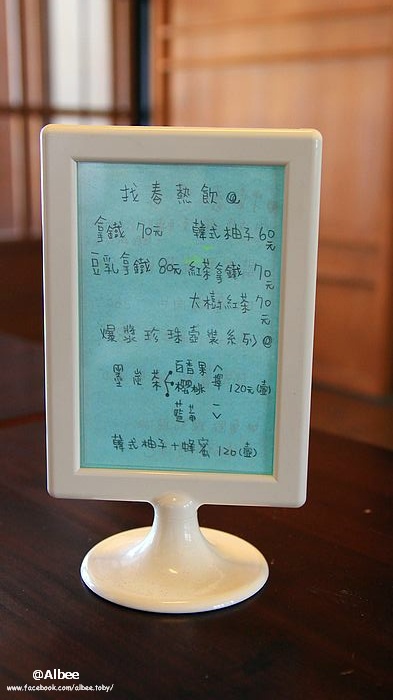 找春熱飲@
拿鐵 70元 韓式柚子 60元
豆乳拿鐵 80元 紅茶拿鐵 70元
大樹紅茶 70元
爆漿珍珠壺裝系列@
百香果
墨炭茶 櫻桃 擇一 120元(壺)
藍莓
韓式柚子+蜂蜜 120(壺)
@Albee
www.facebook.com/albee.toby/